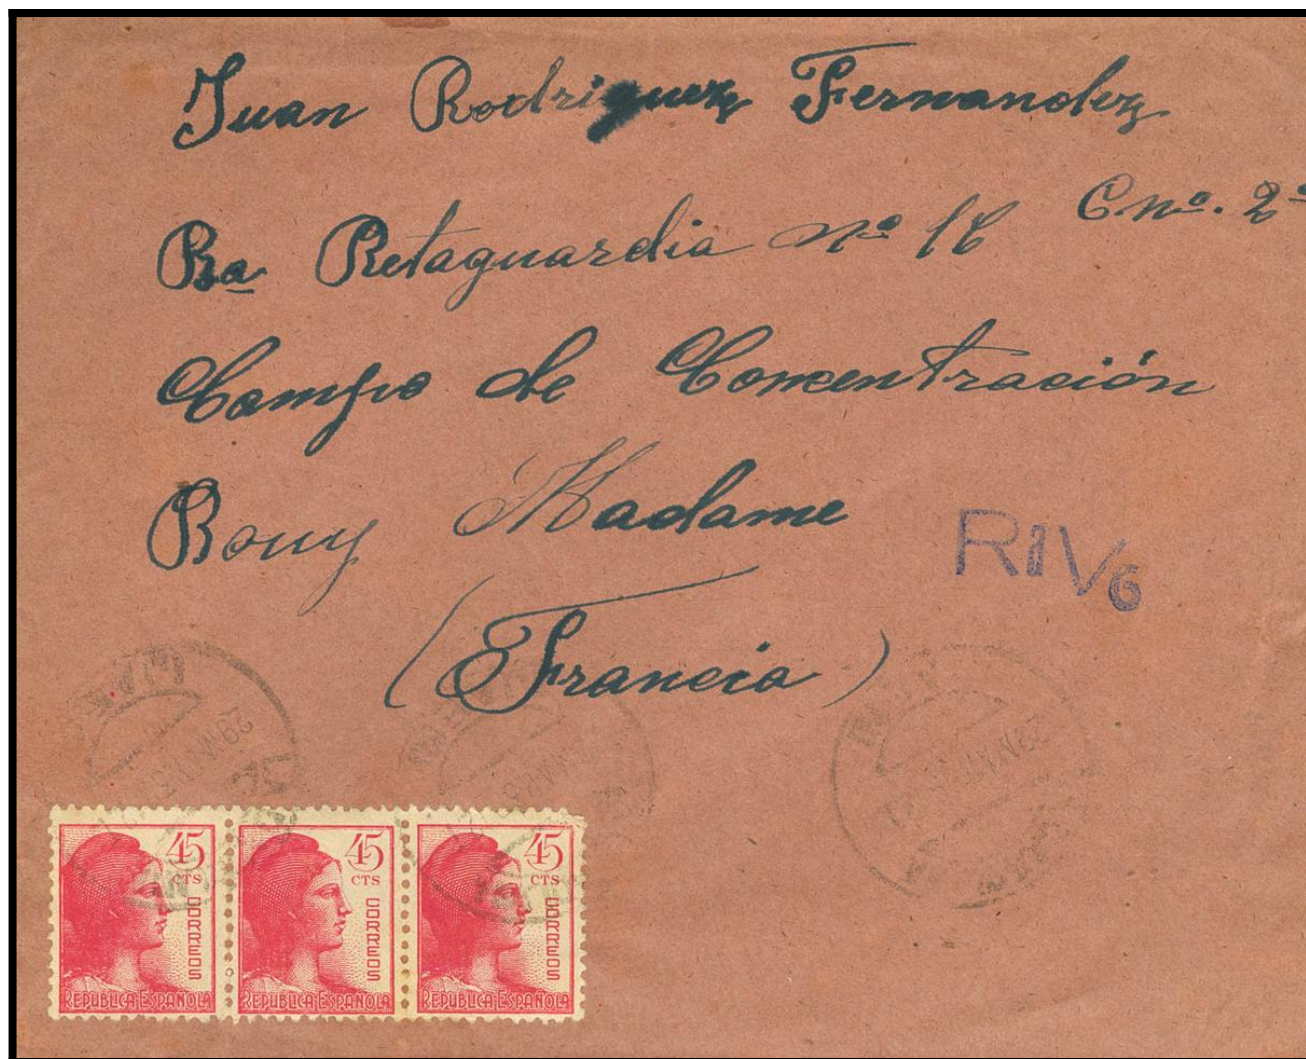 Juan Rodriguez Fernandez
Bª Retaguardia nº 16 Cnª. 2ª
Campo de Concentración
Bouy Madame
(Francia)
R1V6
45 CTS CORREOS REPUBLICA ESPAÑOLA
45 CTS CORREOS REPUBLICA ESPAÑOLA
45 CTS CORREOS REPUBLICA ESPAÑOLA